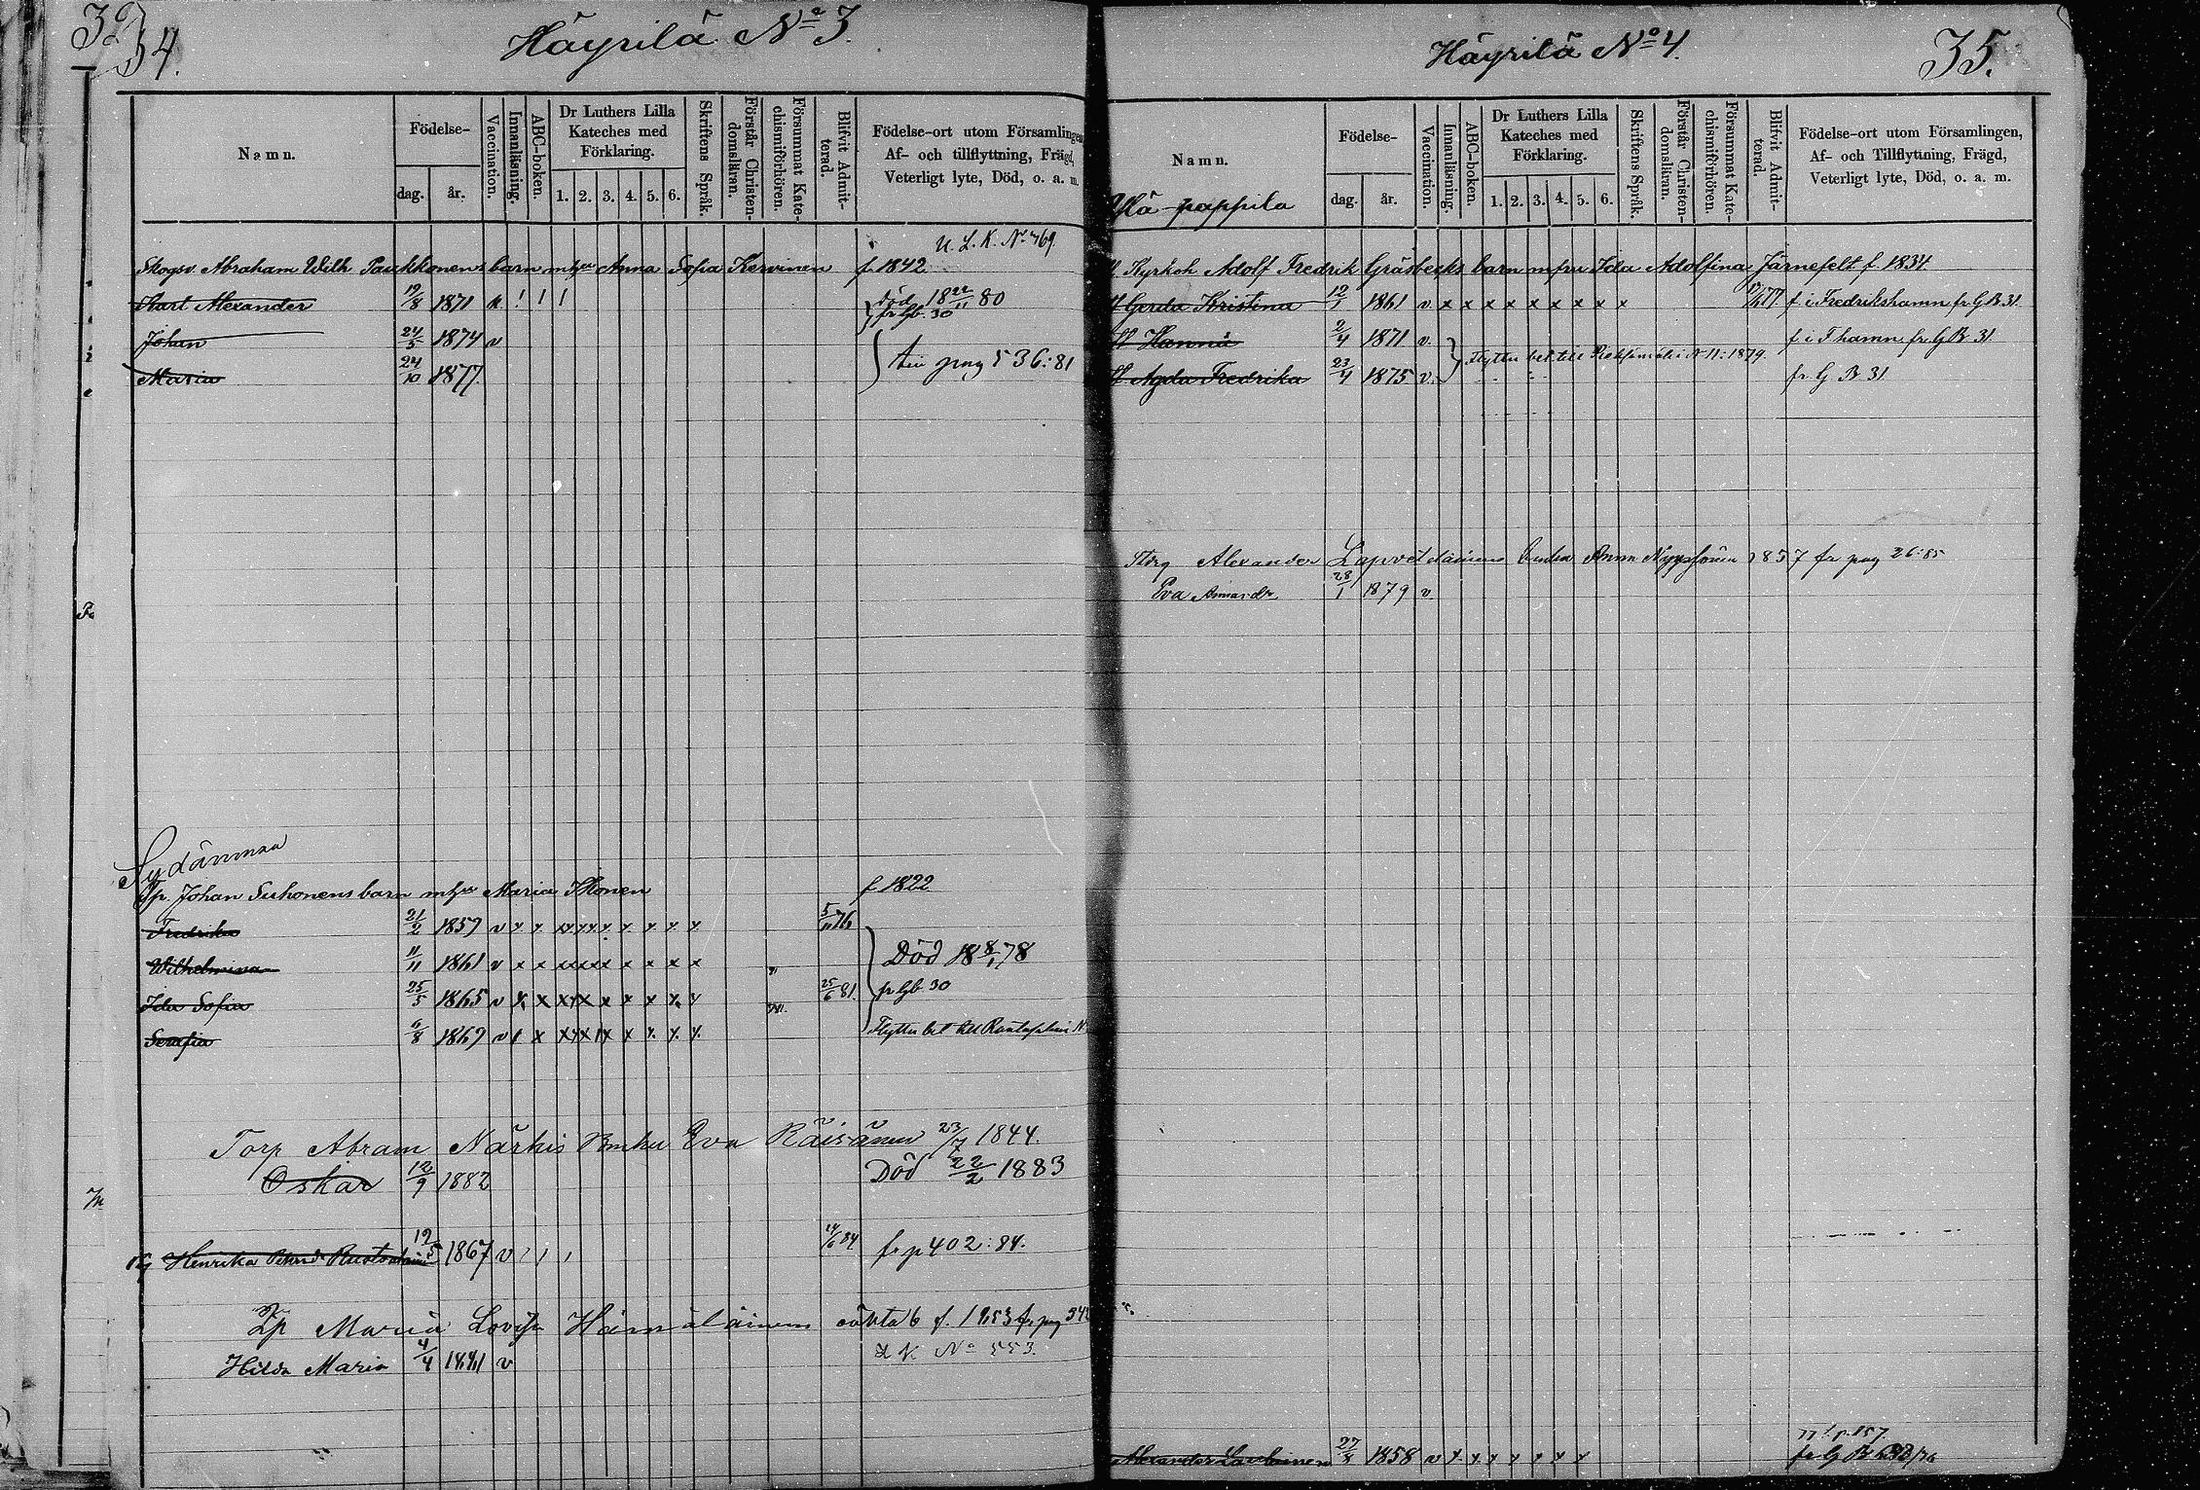 34.
Häyrilä No 3.
Namn.
Födelse-
dag. år.
Vaccination.
Innanläsning.
ABC-boken.
Dr Luthers Lilla Kateches med Förklaring.
1. 2. 3. 4. 5. 6.
Skriftens Språk.
Förstår Christendomsläran.
Försummat Katechismiförhören.
Blifvit Admitterad.
Födelse-ort utom Församlingen,
Af- och tillflyttning, Frägd,
Veterligt lyte, Död, o. a. m.
U. L. K. No 769
Skogsv. Abraham Wilh Paukkonens barn m hu Anna Sofia Kervinen f 1842
Kart Alexander 19/8 1871 död 18 22/11 80
fr Gb. 30
Johan 24/5 1874 v
Maria 24/10 1877 till pag 536:81
Sydänmaa
Johan Suhonens barn m hu Maria Ikonen f 1822
Fredrika 21/2 1859 v x x x x x x x x x x 5/11 76
Wilhelmina 11/11 1861 v x x x x x x x x x x Död 18 8/1 78
Ida Sofia 25/5 1865 v x x x x x x x x x x 25/6 81. fr Gb 30
Serafia 6/8 1869 v x x x x x x x x x Flyttn bet till Rautalampi N
Torp Abram Närhis Enka Eva Räisänen 23/7 1844.
Oskar 12/9 1882 Död 22/2 1883
Henrika 12/5 1867 v 14/6 84 fr p 402:84.
Maria Lovisa Hämäläinens oäkta b f. 1853 fr pag
No 553.
Hilda Maria 4/4 1881 v
35.
Häyrilä No 4.
Namn.
Ylä-pappila
Födelse-
dag. år.
Vaccination.
Innanläsning.
ABC-boken.
Dr Luthers Lilla Kateches med Förklaring.
1. 2. 3. 4. 5. 6.
Skriftens Språk.
Förstår Christendomsläran.
Försummat Katechismiförhören.
Blifvit Admitterad.
Födelse-ort utom Församlingen,
Af- och Tillflyttning, Frägd,
Veterligt lyte, Död, o. a. m.
Kyrkoh Adolf Fredrik Gräsbecks barn m fru Ida Adolfina Järnefelt f 1834
Gerda Kristina 12/1 1861 v x x x x x x x x x f i Fredrikshamn fr G B 31
Hanna 2/4 1871 v. f i F hamn fr G B 31
Flyttn bet till Pieksämäki N 11: 1879.
Agda Fredrika 23/4 1875 v. fr G B 31
Alexander Lapveteläinens Enka Anna 1857 fr pag 26:85
Eva Amanda 28/1 1879 v.
p. 157
Alexander 1858 v x x x x x x x fr G B